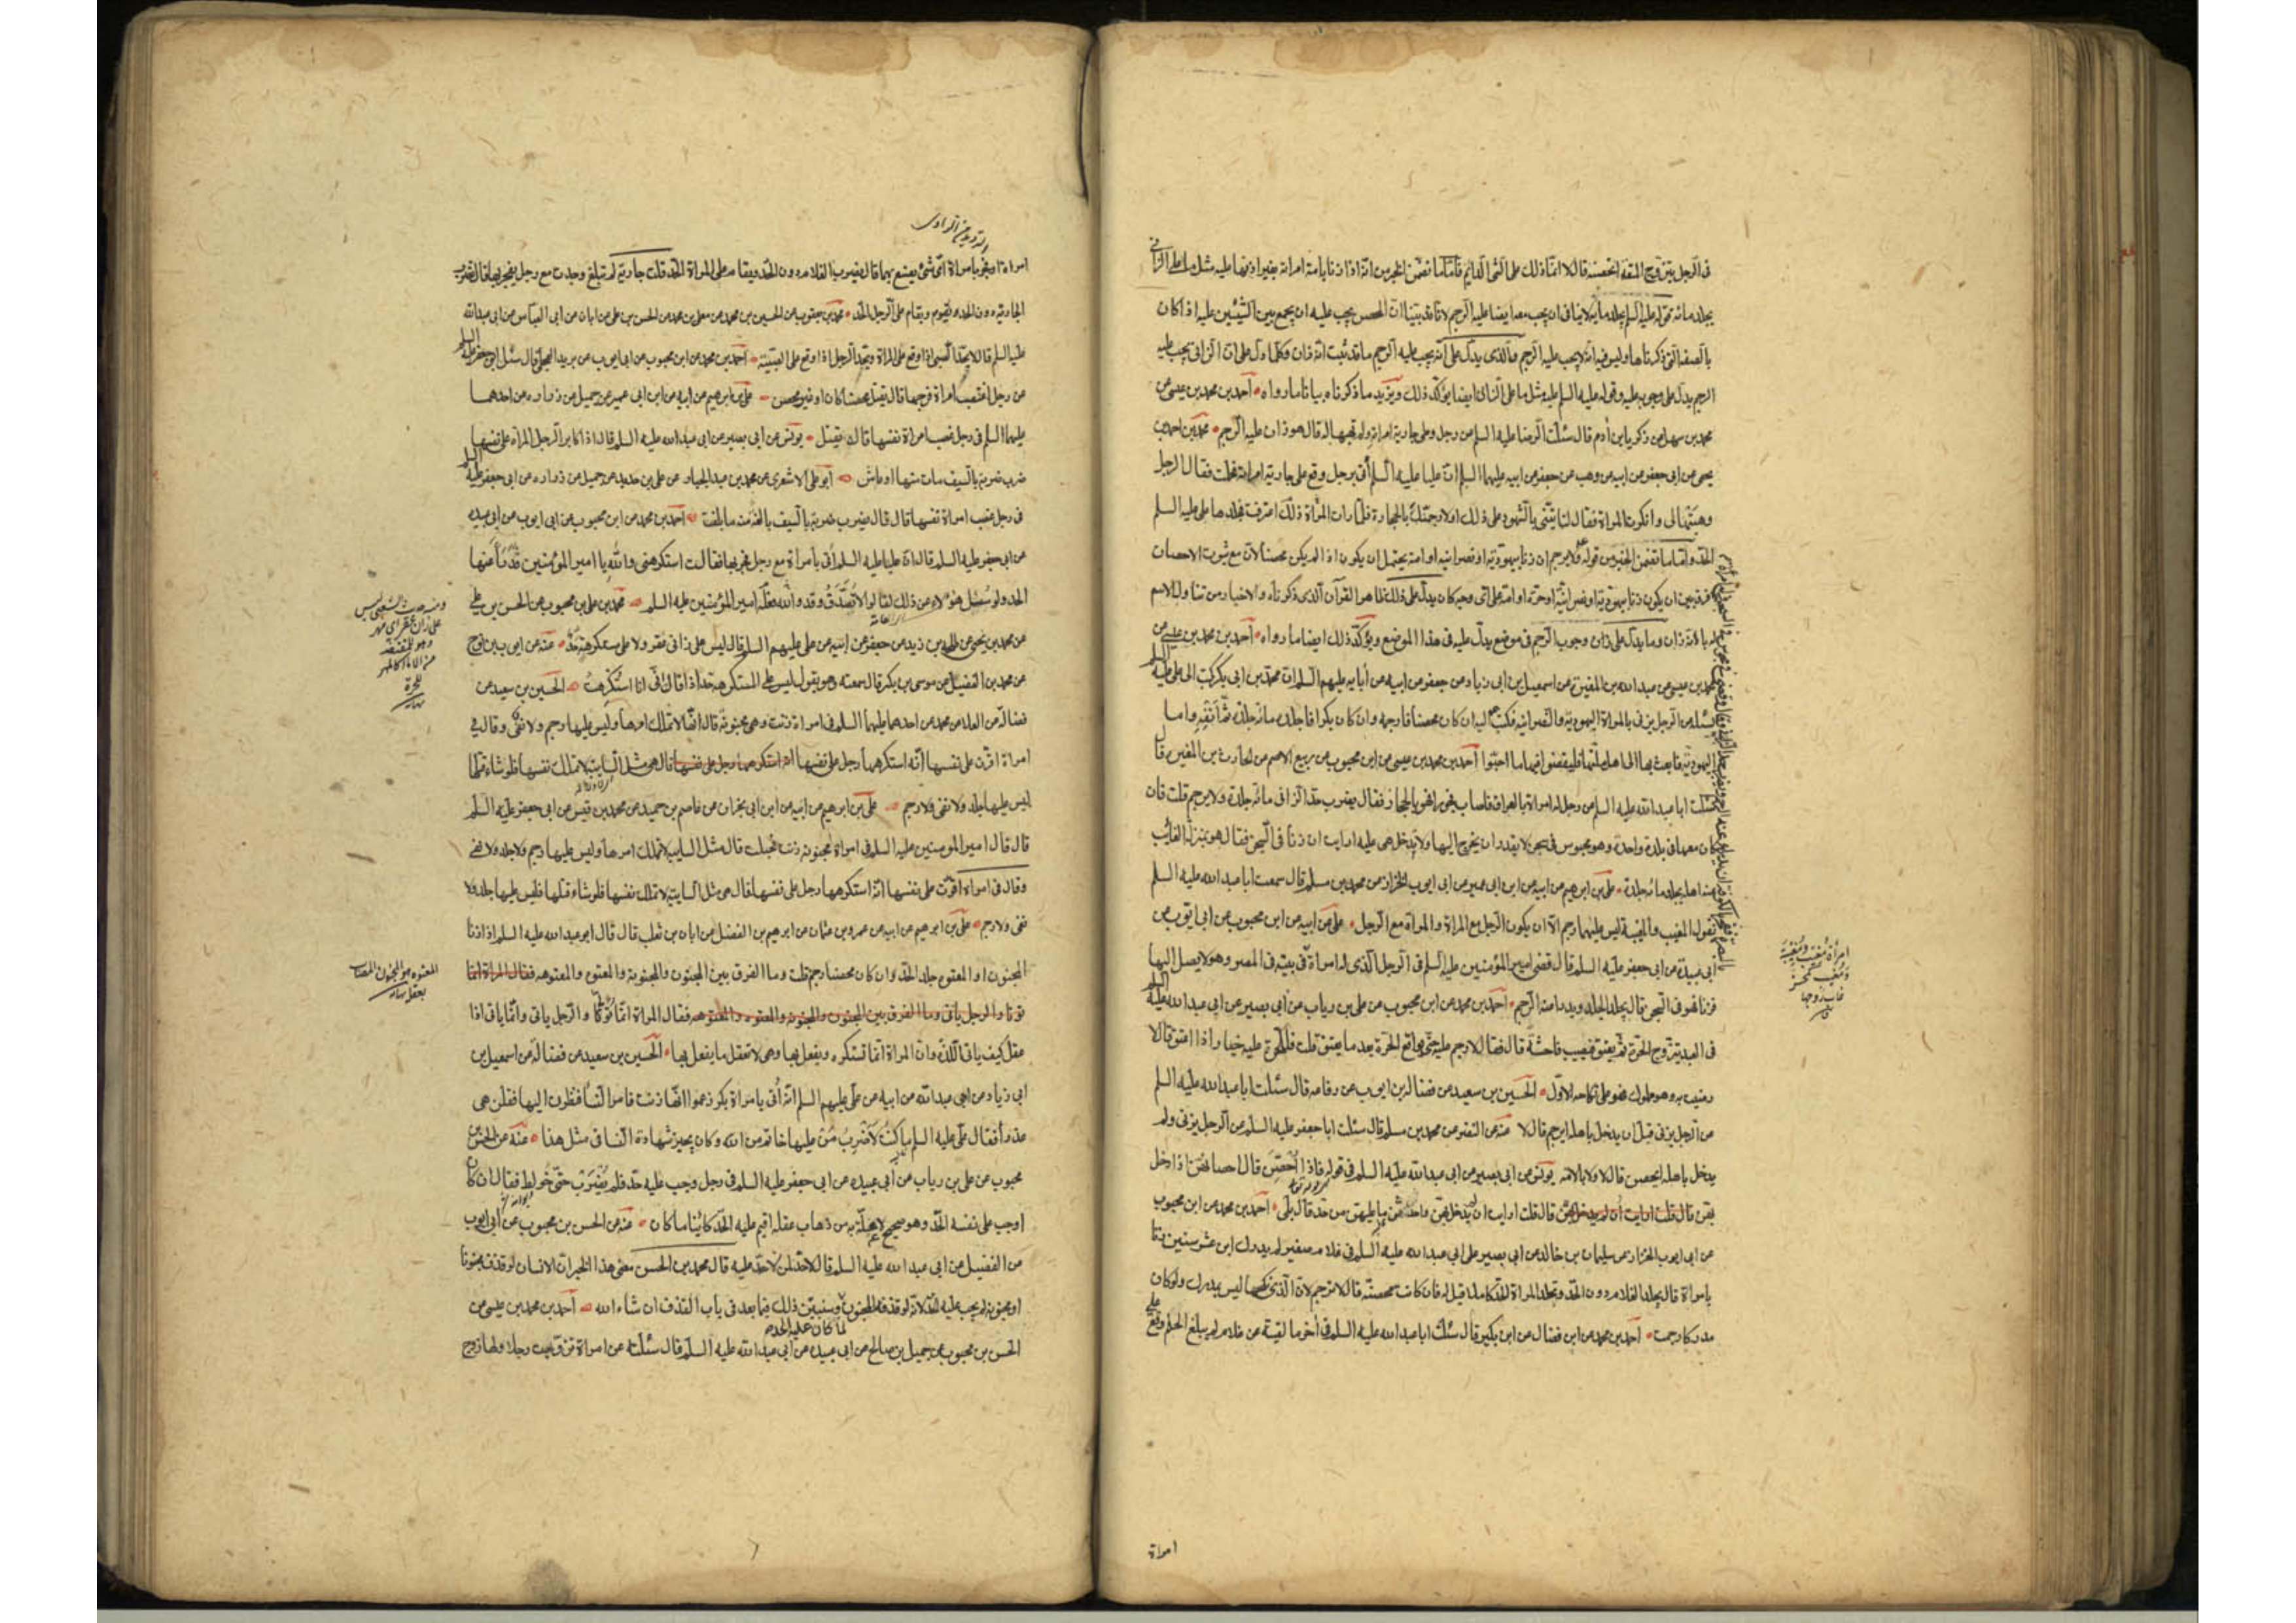 في الرجل يتزوج المتعة اتحصنه قال لا انما ذلك على الشئ الدائم فاما ما تضمن الخبر من انه اذا زنا بامة امراته بغير اذنها عليه مثل ما على الزاني
يجلد مائة قوله عليه السلم يجلد مائة لا ينافي ان يجب معه ايضا عليه الرجم لانا قد بيّنا ان المحصن يجب عليه ان يجمع بين الشيئين عليه اذا كان
بالصفة التي ذكرناها وليس فيه انه لا يجب عليه الرجم والذي يدل على انه يجب عليه الرجم ما قد ثبت انه زان وكلما دل على ان الزاني يجب عليه
الرجم يدل على وجوبه عليه وقوله عليه السلم عليه مثل ما على الزاني ايضا يؤكد ذلك ويزيد ما ذكرناه بيانا ما رواه احمد بن محمد بن عيسى عن
محمد بن سهل عن زكريا بن آدم قال سئلت الرضا عليه السلم عن رجل وطى جارية امراته ولم تهبها له قال هو زان عليه الرجم محمد بن احمد بن
يحيى عن ابي جعفر عن ابيه عن وهب عن جعفر عن ابيه عليهما السلم ان عليا عليه السلم أتي برجل وقع على جارية امراته فحملت فقال الرجل
وهبتها لي وانكرت المراة فقال لتاتيني بالشهود على ذلك او لارجمنك بالحجارة فلما رات المرأة ذلك اعترفت فجلدها علي عليه السلم
الحد واما ما تضمن الخبر من قوله ولا يرجم ان زنا بيهودية او نصرانية او امة يحتمل ان يكون اذا لم يكن محصنا لان مع ثبوت الاحصان
لا فرق بين ان يكون زنا بيهودية او نصرانية او حرة او امة على اي وجه كان يدل على ذلك ظاهر القرآن الذي ذكرناه والاخبار من تناول الاسم
له بانه زان وما يدل على زان وجوب الرجم في موضع يدل عليه في هذا الموضع ويؤكد ذلك ايضا ما رواه احمد بن محمد بن عيسى عن
محمد بن عيسى عن عبد الله بن المغيرة عن اسمعيل بن ابي زياد عن جعفر عن ابيه عن آبايه عليهم السلم ان محمد بن ابي بكر كتب الى علي عليه السلم
يسئله عن الرجل يزني بالمراة اليهودية والنصرانية فكتب اليه ان كان محصنا فارجمه وان كان بكرا فاجلده مائة جلدة ثم انفه واما
اليهودية فابعث بها الى اهل ملتها فليقضوا فيها ما احبّوا احمد بن محمد بن عيسى عن ابن محبوب عن ربيع الاصم عن الحارث بن المغيرة قال
سئلت ابا عبد الله عليه السلم عن رجل له امراة بالعراق فاصاب فجورا وهو بالحجاز فقال يضرب حد الزاني مائة جلدة ولا يرجم قلت فان
كان معها في بلدة واحدة وهو محبوس في سجن لا يقدر ان يخرج اليها ولا تدخل هي عليه ارايت ان زنا في السجن فقال هو بمنزلة الغائب
عنه اهله يجلد مائة جلدة علي بن ابرهيم عن ابيه عن ابن ابي عمير عن ابي ايوب الخزاز عن محمد بن مسلم قال سمعت ابا عبد الله عليه السلم
يقول المغيب والمغيبة ليس عليهما رجم الا ان يكون الرجل مع المراة والمراة مع الرجل علي عن ابيه عن ابن محبوب عن ابي ايوب عن
أبي عبيدة عن ابي جعفر عليه السلم قال قضى امير المؤمنين عليه السلم في الرجل الذي له امراة في بيته في المصر وهو لا يصل اليها
فزنا وهو في السجن قال يجلد الجلد ويدرا عنه الرجم احمد بن محمد عن ابن محبوب عن علي بن رياب عن ابي بصير عن ابي عبد الله عليه السلم
في العبد يتزوج الحرة ثم يعتق فيصيب فاحشة قال فقال لا رجم عليه حتى يواقع الحرة بعد ما يعتق قلت فللحرة عليه خيار اذا اعتق قال لا
رضيت به وهو مملوك فهو على نكاحه الاول الحسين بن سعيد عن فضالة بن ايوب عن رفاعة قال سئلت ابا عبد الله عليه السلم
عن الرجل يزني قبل ان يدخل باهله ايرجم قال لا عنه عن النضر عن محمد بن مسلم قال سئلت ابا جعفر عليه السلم عن الرجل يزني ولم
يدخل باهله ايحصن قال لا ولا بالامة يونس عن ابي بصير عن ابي عبد الله عليه السلم في قوله فاذا اُحصِنّ قال احصانهن اذا دخل
بهن قال قلت ارايت ان لم يدخل بهن واحدثن ما عليهن من حد قال بلى احمد بن محمد عن ابن محبوب
عن ابي ايوب الخزاز عن سليمان بن خالد عن ابي بصير عن ابي عبد الله عليه السلم في غلام صغير لم يدرك ابن عشر سنين زنا
بامراة قال يجلد الغلام دون الحد وتجلد المراة الحد كاملا قيل له فان كانت محصنة قال لا ترجم لان الذي نكحها ليس بمدرك ولو كان
مدركا رجمت احمد بن محمد عن ابن فضال عن ابن بكير قال سئلت ابا عبد الله عليه السلم في آخر ما لقيته عن غلام لم يبلغ الحلم وقع على
امراة
امرأة مُغيب ومُغيبة
امراة او فجر بامراة اي شئ يصنع بهما قال يضرب الغلام دون الحد ويقام على المراة الحد قلت جارية لم تبلغ وجدت مع رجل يفجر بها قال تضرب
الجارية دون الحد ويقام على الرجل الحد محمد بن يعقوب عن الحسين بن محمد عن معلى بن محمد عن الحسن بن علي عن ابان عن ابي العباس عن ابي عبد الله
عليه السلم قال لا يحد الصبي اذا وقع على المراة ويحد الرجل اذا وقع على الصبية احمد بن محمد عن ابن محبوب عن ابي ايوب عن بريد العجلي قال سئل ابو جعفر عليه السلم
عن رجل اغتصب امراة فرجها قال يقتل محصنا كان او غير محصن علي بن ابرهيم عن ابيه عن ابن ابي عمير عن جميل عن زرارة عن احدهما
عليهما السلم في رجل غصب امراة نفسها قال يقتل يونس عن ابي بصير عن ابي عبد الله عليه السلم قال اذا كابر الرجل المراة على نفسها
ضرب ضربة بالسيف مات منها او عاش ابو علي الاشعري عن محمد بن عبد الجبار عن علي بن حديد عن جميل عن زرارة عن ابي جعفر عليه السلم
في رجل غصب امراة نفسها قال قال يضرب ضربة بالسيف بالغة منه ما بلغت احمد بن محمد عن ابن محبوب عن ابي ايوب عن ابي عبيدة
عن ابي جعفر عليه السلم قال ان عليا عليه السلم أتي بامراة مع رجل فجر بها فقالت استكرهني والله يا امير المؤمنين فدرأ عنها
الحد ولو سئل هؤلاء عن ذلك لقالوا لا تُصدّق وقد والله فعله امير المؤمنين عليه السلم محمد بن علي بن محبوب عن الحسن بن علي
عن محمد بن يحيى عن طلحة بن زيد عن جعفر عن ابيه عن علي عليهم السلم قال ليس على زانٍ عقر ولا على مستكرهة حد عنه عن ايوب بن نوح
عن محمد بن الفضيل عن موسى بن بكر قال سمعته وهو يقول ليس على المستكرهة حد اذا قالت انّي انا استُكرهتُ الحسين بن سعيد عن
فضالة عن العلا عن محمد عن احدهما عليهما السلم في امراة زنت وهي مجنونة قال انها لا تملك امرها وليس عليها رجم ولا نفي وقال في
امراة اقرّت على نفسها انه استكرهها رجل على نفسها قال هي مثل السايبة لا تملك نفسها فلو شاء قتلها
ليس عليها جلد ولا نفي ولا رجم علي بن ابرهيم عن ابيه عن ابن ابي نجران عن عاصم بن حميد عن محمد بن قيس عن ابي جعفر عليه السلم
قال قال امير المومنين عليه السلم في امراة مجنونة زنت فحبلت قال مثل السايبة لا تملك امرها وليس عليها رجم ولا جلد ولا نفي
وقال في امراة اقرّت على نفسها انه استكرهها رجل على نفسها قال هي مثل السايبة لا تملك نفسها فلو شاء قتلها فليس عليها جلد ولا
نفي ولا رجم علي بن ابرهيم عن ابيه عن عمرو بن عثمان عن ابرهيم بن الفضل عن ابان بن تغلب قال قال ابو عبد الله عليه السلم اذا زنا
المجنون او المعتوه جلد الحد وان كان محصنا رجم قلت وما الفرق بين المجنون والمجنونة والمعتوه والمعتوهة فقال المراة انما
تؤتا والرجل ياتي وما الفرق بين المجنون والمجنونة والمعتوه والمعتوهة فقال المراة انما تُؤتى والرجل ياتي وانما ياتي اذا
عقل كيف ياتي اللذة وان المراة انما تستكره ويفعل بها وهي لا تعقل ما يفعل بها الحسين بن سعيد عن فضالة عن اسمعيل بن
ابي زياد عن ابي عبد الله عن ابيه عن علي عليهم السلم انه أُتي بامراة بكر زعموا انها زنت فامر النسا فنظرن اليها فقلن هي
عذرأ فقال علي عليه السلم ما كنتُ لاضرب مَن عليها خاتم من الله وكان يجيز شهادة النسا في مثل هذا عنه عن الحسن بن
محبوب عن علي بن رياب عن أبي عبيدة عن ابي جعفر عليه السلم في رجل وجب عليه حد فلم يُضرب حتى خُولط فقال ان كان
اوجب على نفسه الحد وهو صحيح لا علة به من ذهاب عقله اقيم عليه الحد كائنا ما كان عنه عن الحسن بن محبوب عن أبي ايوب
عن الفضيل عن ابي عبد الله عليه السلم قال لا حد لمن لا حد عليه قال محمد بن الحسن معنى هذا الخبر ان الانسان لو قذف مجنونا
او مجنونة لم يجب عليه الحد لانه لو قذفه المجنون لما كان عليه الحد وسنبين ذلك فيما بعد في باب القذف ان شاء الله احمد بن محمد بن عيسى عن
الحسن بن محبوب عن جميل بن صالح عن ابي عبيدة عن أبي عبد الله عليه السلم قال سئلته عن امراة تزوجت رجلا ولها زوج
ومنه حديث الشعبي ليس
على زان عقر اي مهر
وهو للمغتصبة
من الاماء كالمهر
للحرة
نهاية
المعتوه هو المجنون المصاب
بعقله نهاية